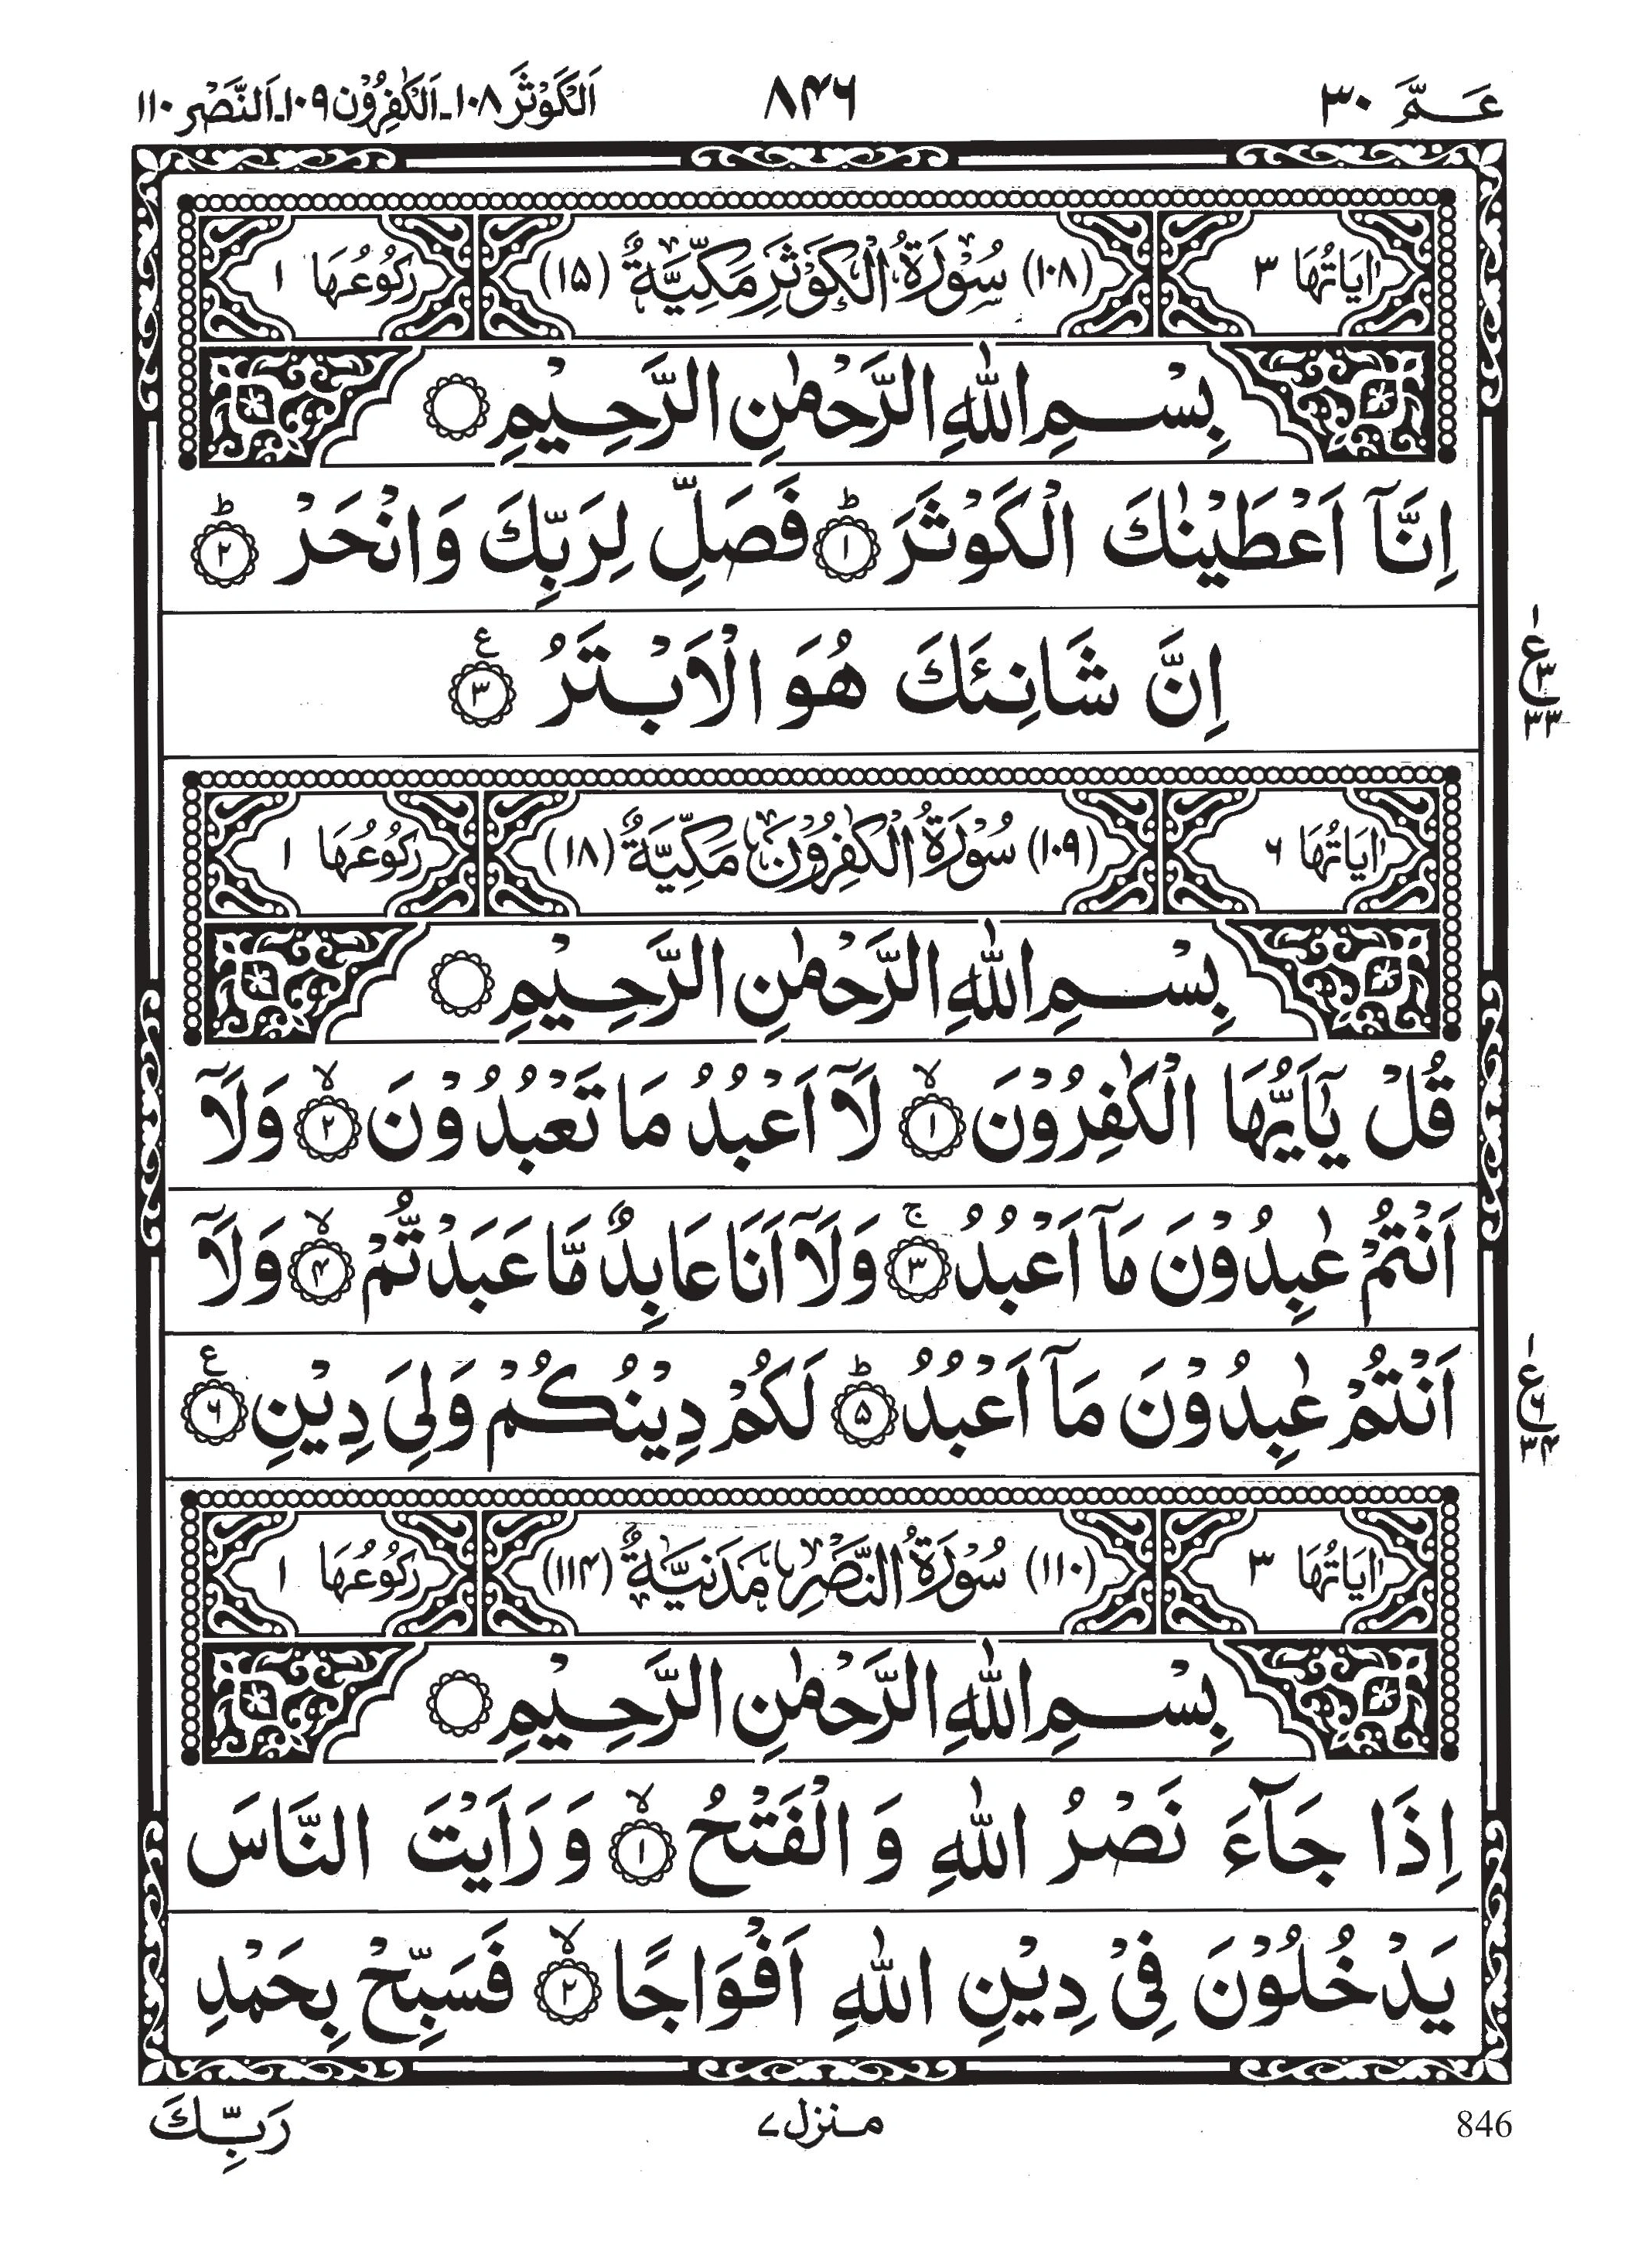 عَـمَّ ٣٠
٨۴۶
اَلْكَوْثَر ١٠٨۔اَلْكٰفِرُوْن ١٠٩۔اَلنَّصْر ١١٠
اٰيَاتُهَا ٣
(١٠٨) سُوْرَةُ الْكَوْثَرِ مَكِّيَّةٌ (١۵)
رُكُوْعُهَا ١
بِسْمِ اللّٰهِ الرَّحْمٰنِ الرَّحِيْمِ ○
اِنَّآ اَعْطَيْنٰكَ الْكَوْثَرَ ؕ﴿١﴾ فَصَلِّ لِرَبِّكَ وَانْحَرْ ؕ﴿٢﴾
اِنَّ شَانِئَكَ هُوَ الْاَبْتَرُ ﴿٣﴾ ع
١
ع
٣
٣٣
اٰيَاتُهَا ۶
(١٠٩) سُوْرَةُ الْكٰفِرُوْنَ مَكِّيَّةٌ (١٨)
رُكُوْعُهَا ١
بِسْمِ اللّٰهِ الرَّحْمٰنِ الرَّحِيْمِ ○
قُلْ يٰٓاَيُّهَا الْكٰفِرُوْنَ ۙ﴿١﴾ لَآ اَعْبُدُ مَا تَعْبُدُوْنَ ۙ﴿٢﴾ وَلَآ
اَنْتُمْ عٰبِدُوْنَ مَآ اَعْبُدُ ۚ﴿٣﴾ وَلَآ اَنَا عَابِدٌ مَّا عَبَدْتُّمْ ۙ﴿۴﴾ وَلَآ
اَنْتُمْ عٰبِدُوْنَ مَآ اَعْبُدُ ؕ﴿۵﴾ لَكُمْ دِيْنُكُمْ وَلِيَ دِيْنِ ﴿۶﴾ ع
١
ع
۶
٣۴
اٰيَاتُهَا ٣
(١١٠) سُوْرَةُ النَّصْرِ مَدَنِيَّةٌ (١١۴)
رُكُوْعُهَا ١
بِسْمِ اللّٰهِ الرَّحْمٰنِ الرَّحِيْمِ ○
اِذَا جَآءَ نَصْرُ اللّٰهِ وَ الْفَتْحُ ۙ﴿١﴾ وَ رَاَيْتَ النَّاسَ
يَدْخُلُوْنَ فِيْ دِيْنِ اللّٰهِ اَفْوَاجًا ۙ﴿٢﴾ فَسَبِّحْ بِحَمْدِ
رَبِّكَ
منزل ٧
846